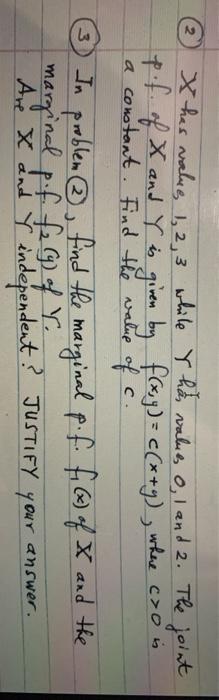 ② X has values 1, 2, 3 while Y has values 0, 1 and 2. The joint
p.f. of X and Y is given by f(x,y) = c(x+y), where c>0 is
a constant. Find the value of c.
③ In problem ②, find the marginal p.f. f₁(x) of X and the
marginal p.f. f₂(y) of Y.
Are X and Y independent? JUSTIFY your answer.